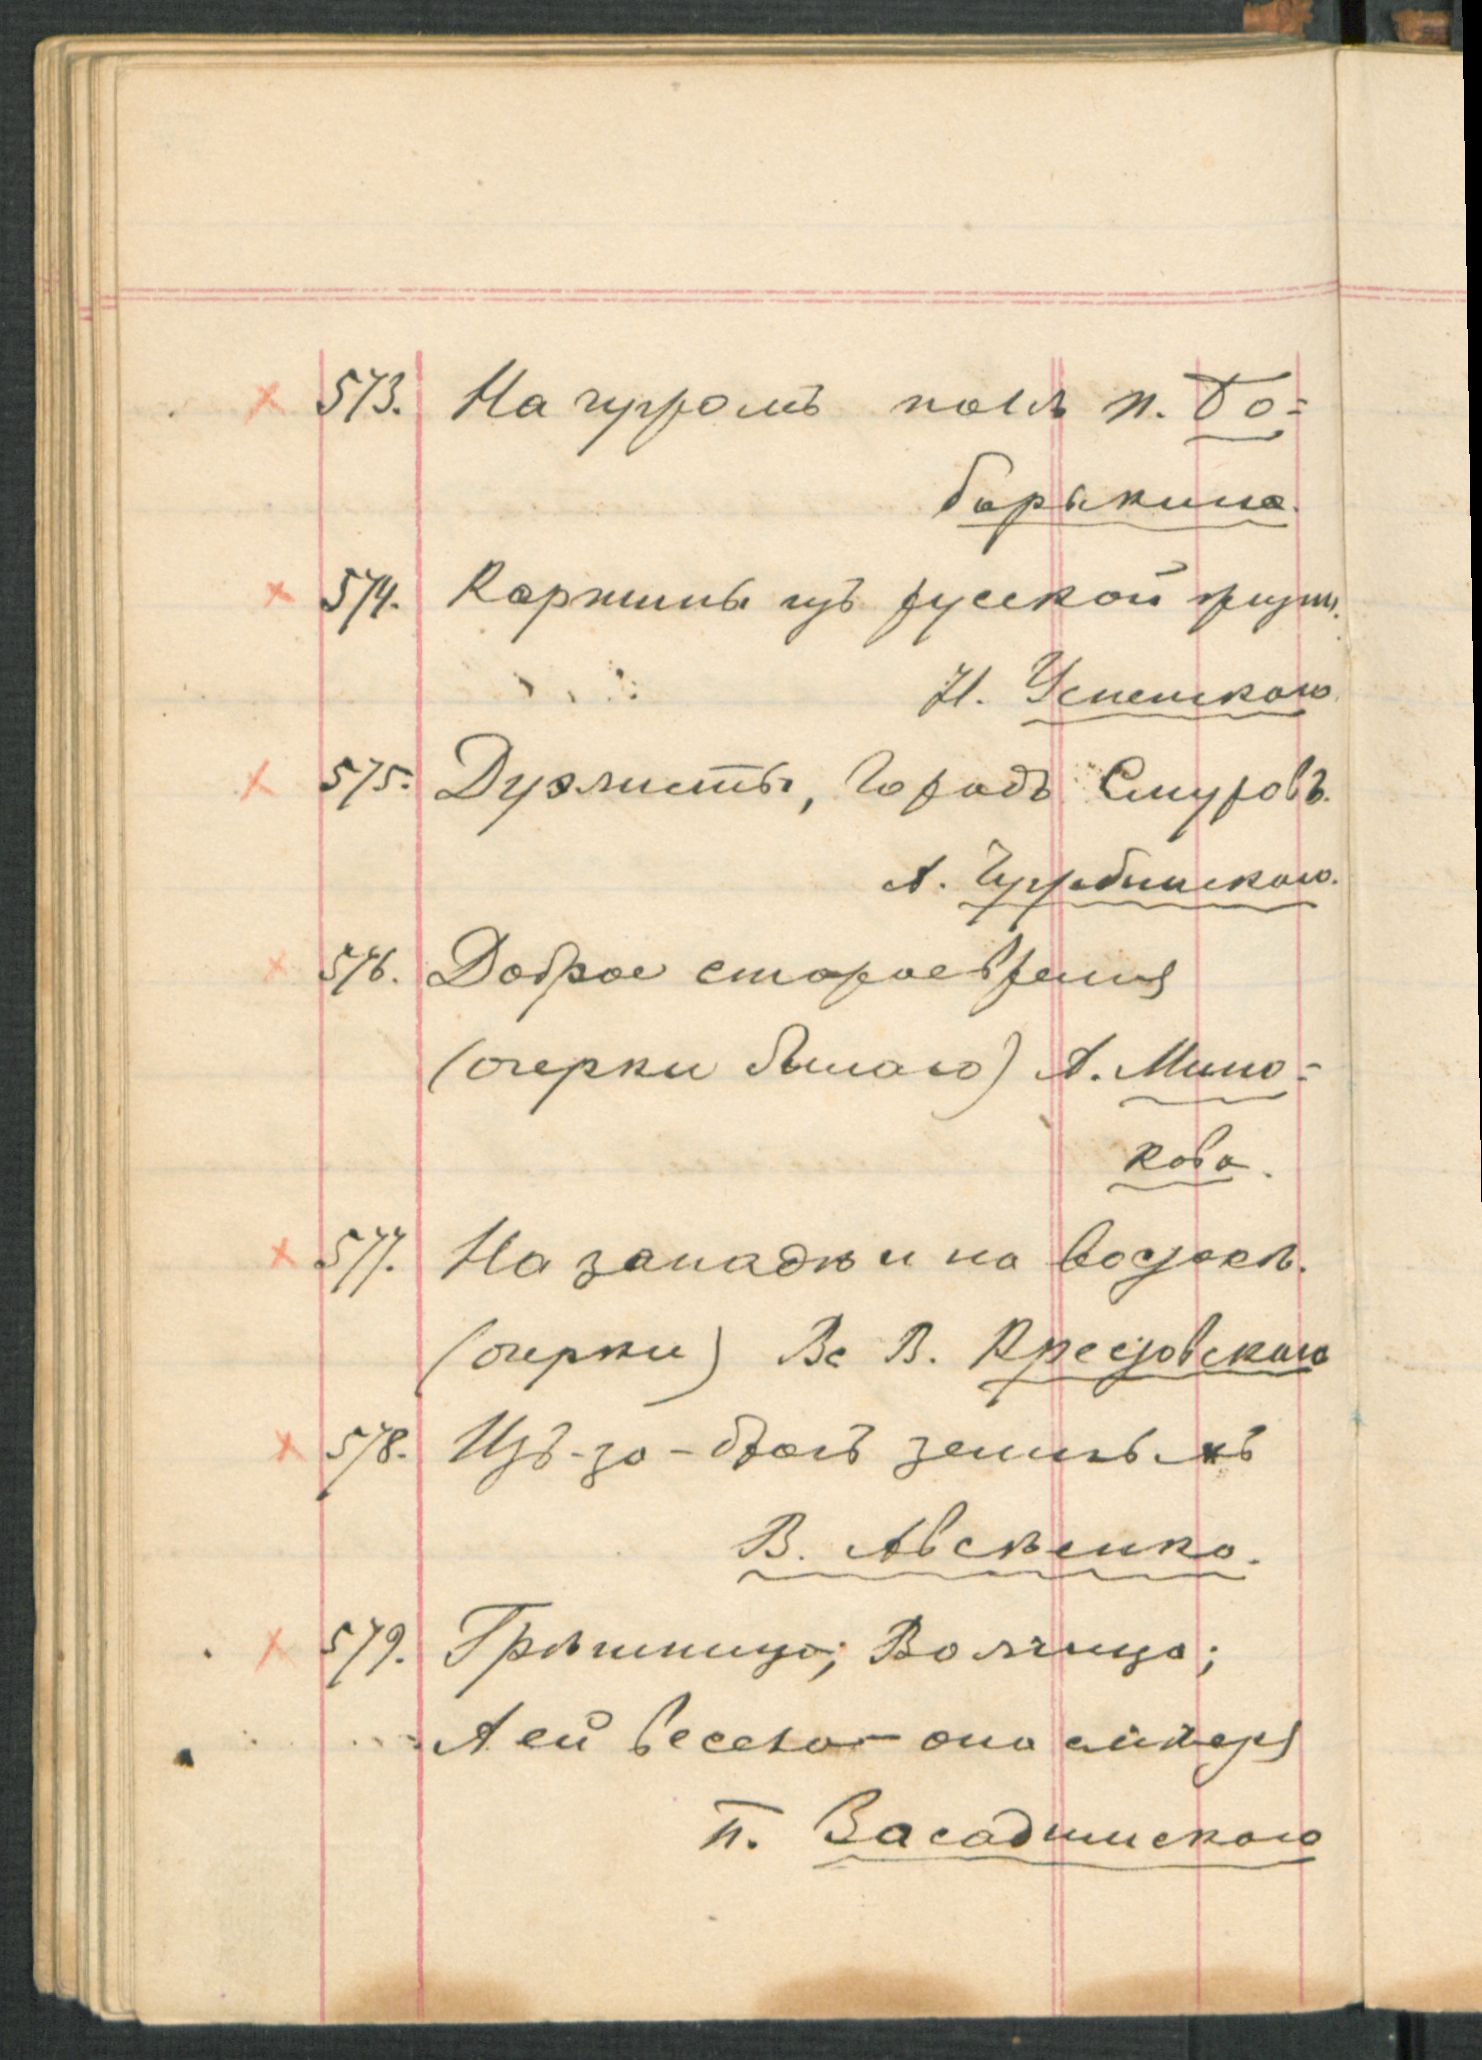 573. На чужомъ полѣ П. Бо=
борыкина.
574. Картины изъ русской жизни.
Н. Успенскаго.
575. Дуэлисты, Городъ Смуровъ.
А. Чужбинскаго.
576. Доброе старое время
(очерки былаго) А. Милю=
кова.
577. На западѣ и на востокѣ.
(очерки) Вс В. Крестовскаго
578. Изъ-за-благъ земныхъ
В. Авсѣенко.
579. Грѣшница; Волчица;
А ей весело - она смѣется
П. Засодимскаго